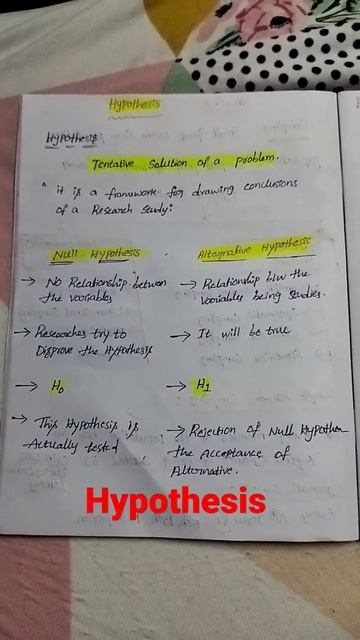 Hypothesis
Hypothesis
Tentative Solution of a problem.
it is a framework for drawing conclusions
of a Research Study:
Null - Hypothesis
→ No Relationship between
the variables
→ Researches try to
Disprove the Hypothesis
→ H0
→ This Hypothesis is
Actually tested
Alternative Hypothesis
→ Relationship b/w the
variables being studies.
→ It will be true
→ H1
→ Rejection of Null Hypothes
the Acceptance of
Alternative.
Hypothesis